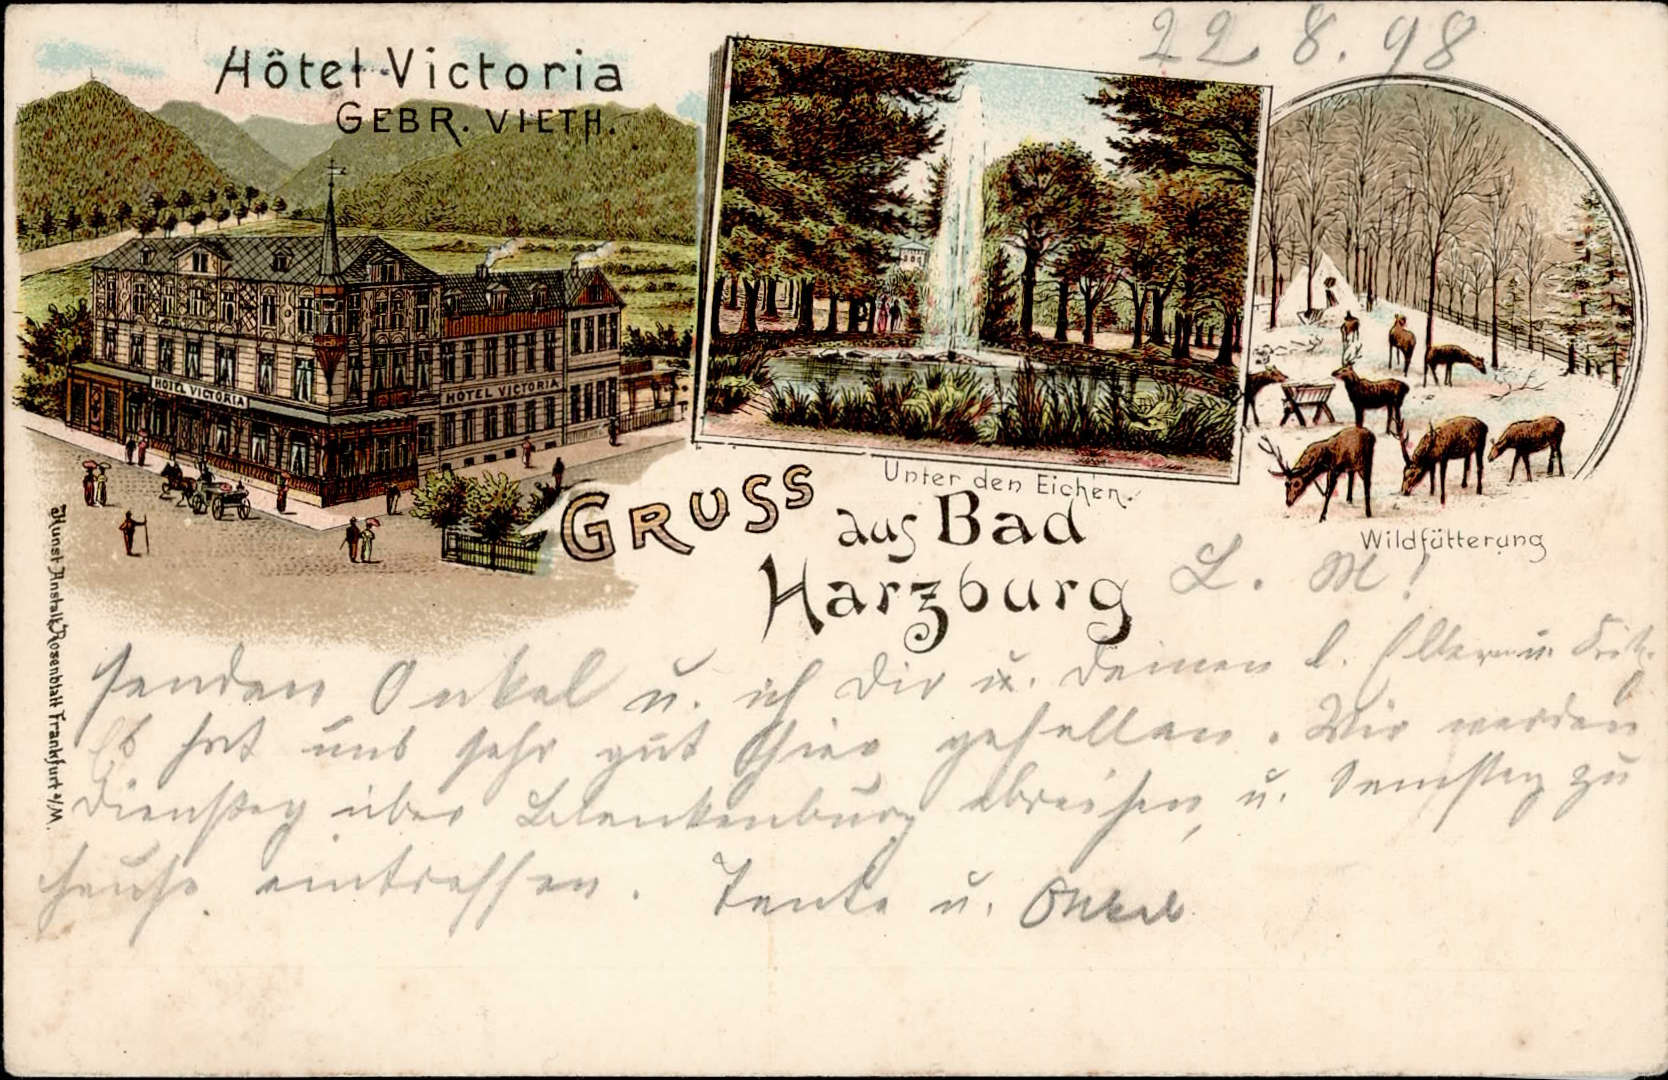 22 8. 98
Hôtel Victoria
GEBR. VIETH.
HOTEL VICTORIA
HOTEL VICTORIA
Unter den Eichen.
Wildfütterung
GRUSS
aus Bad
Harzburg
Kunst-Anstalt Rosenblatt Frankfurt a/M.
L. M!
senden Onkel u. ich Dir u. Deinen l. Eltern u.
Es hat uns sehr gut hier gefallen. Wir werden
Dienstag über Blankenburg abreisen, u. Samstag zu
hause eintreffen. Tante u. Onkel